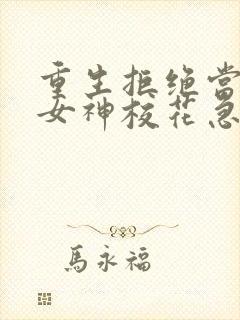 重生拒绝当
女神校花急
馬永福